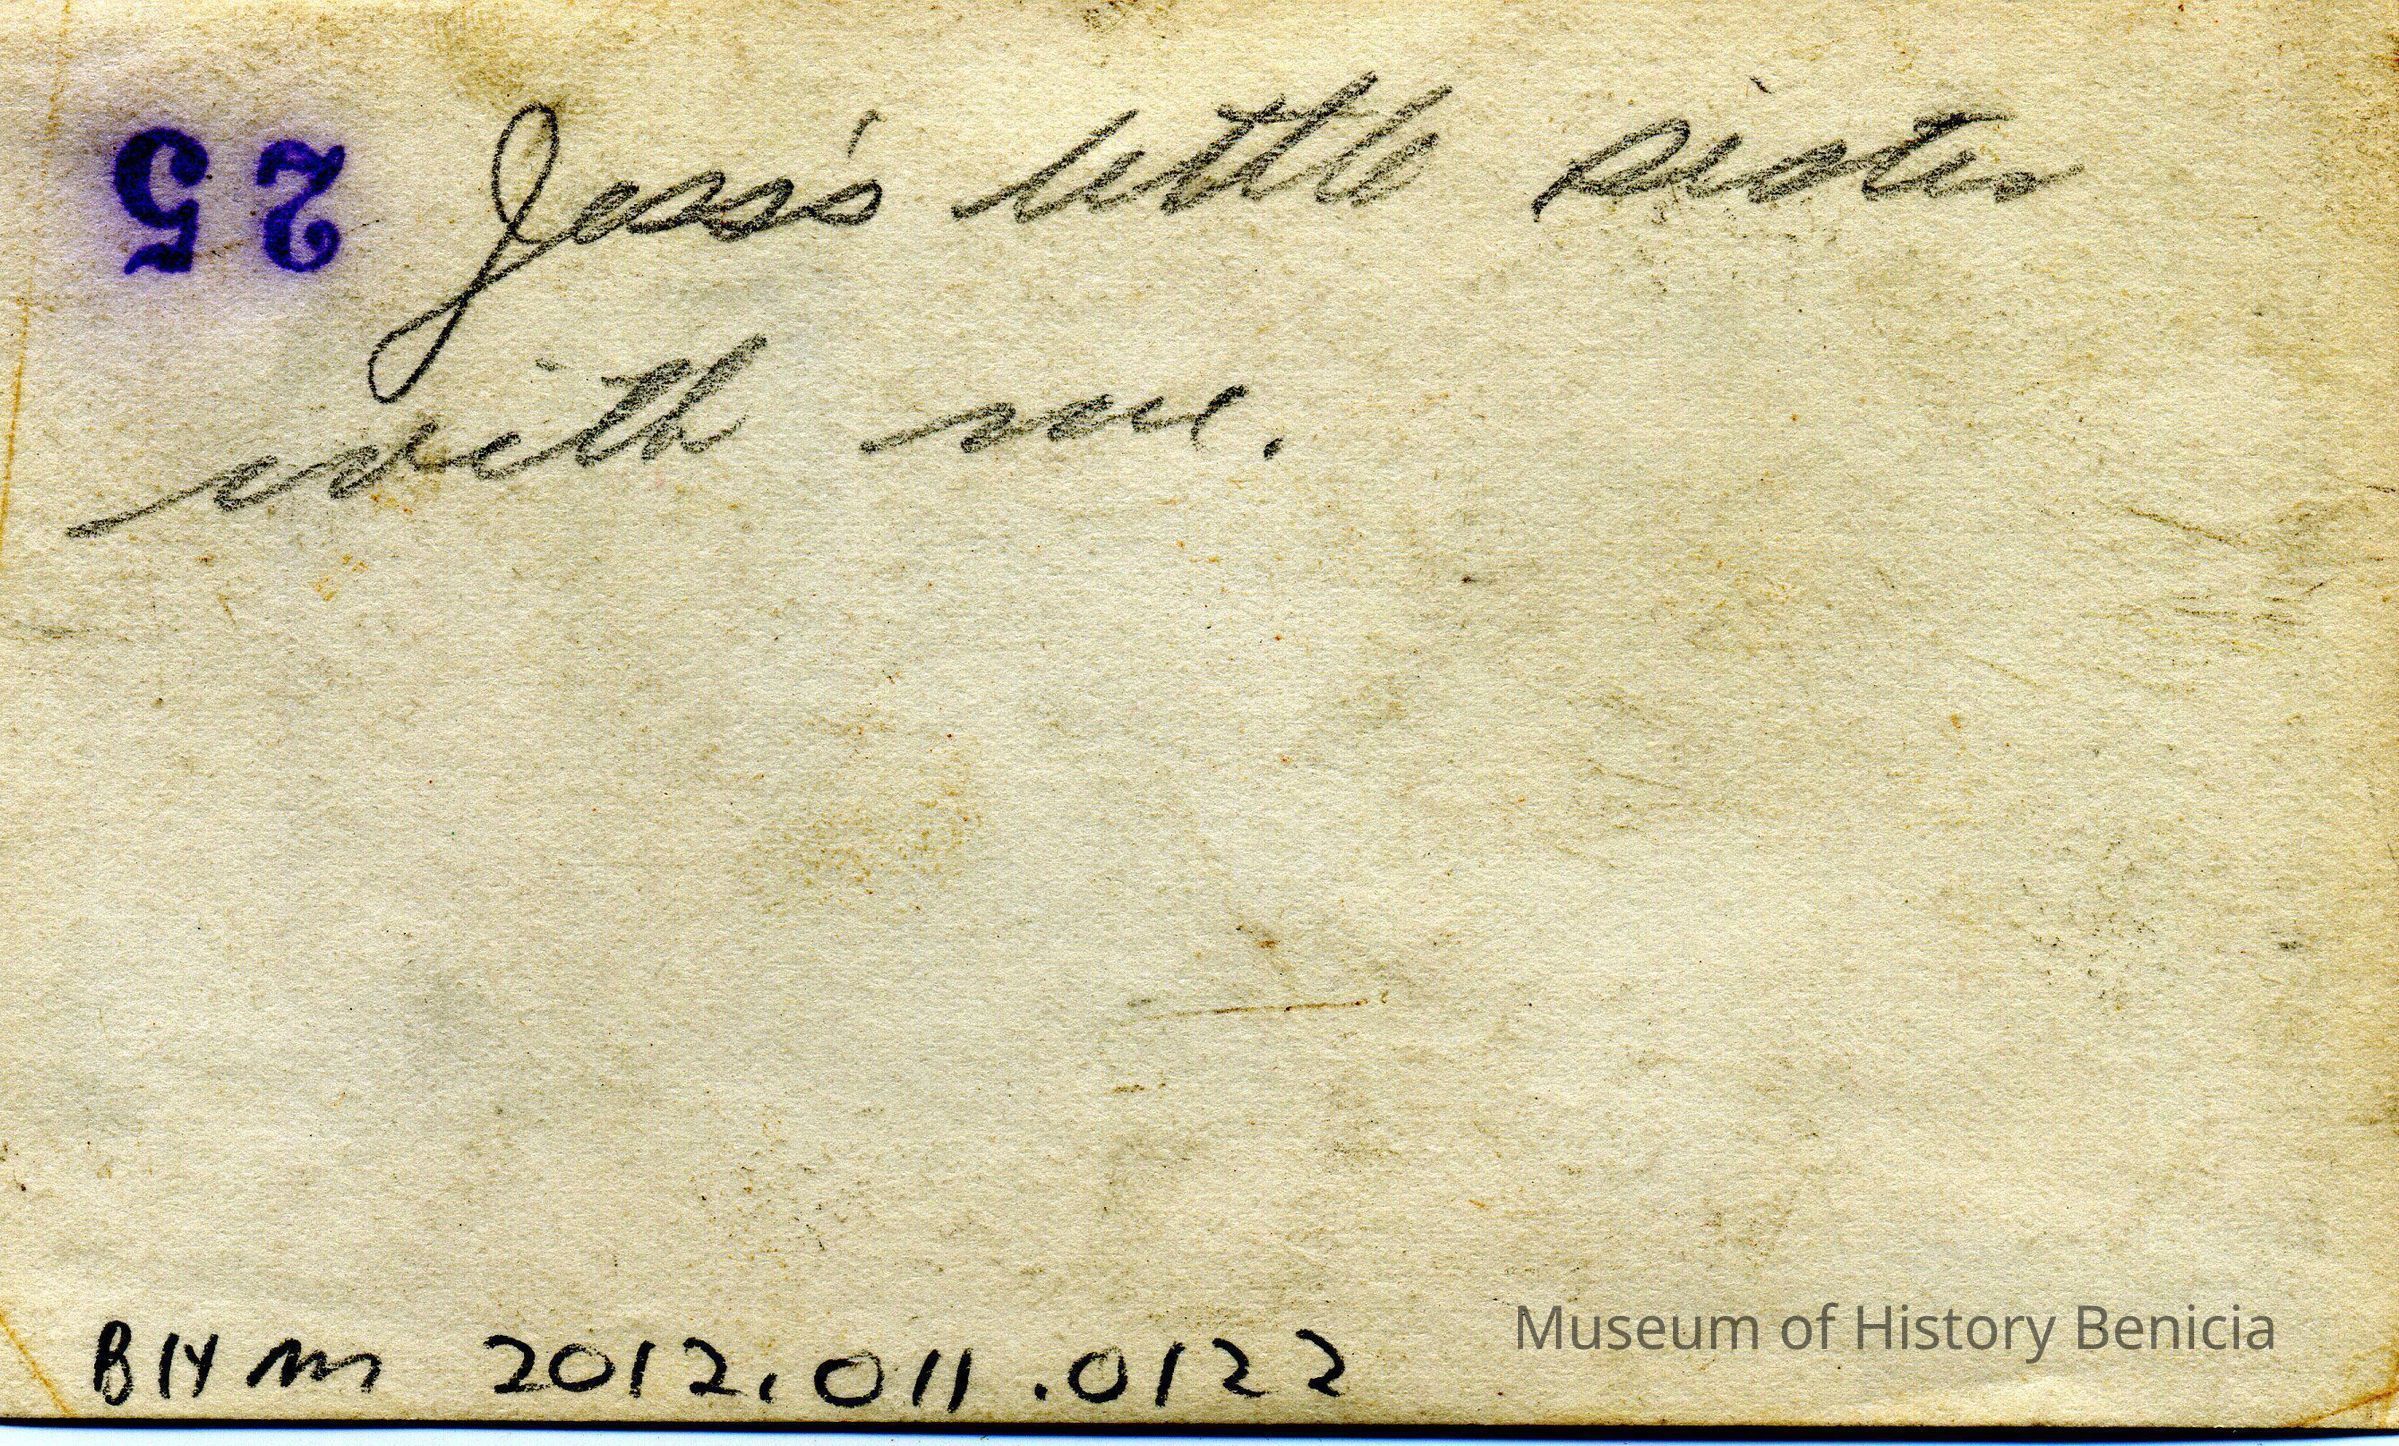 25
Jess's little sister
with me.
BHM 2012.011.0122
Museum of History Benicia